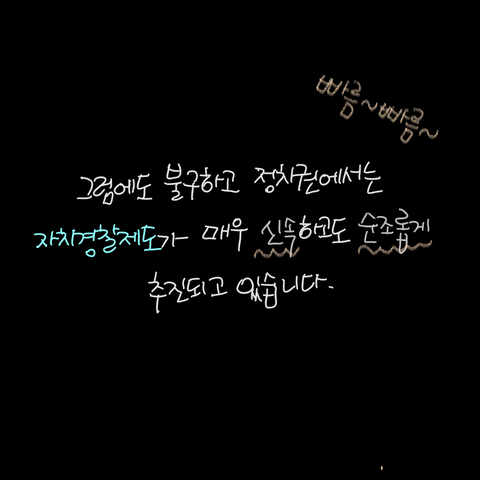 빠름~빠름~
그럼에도 불구하고 정치권에서는
자치경찰제도가 매우 신속하고도 순조롭게
추진되고 있습니다.